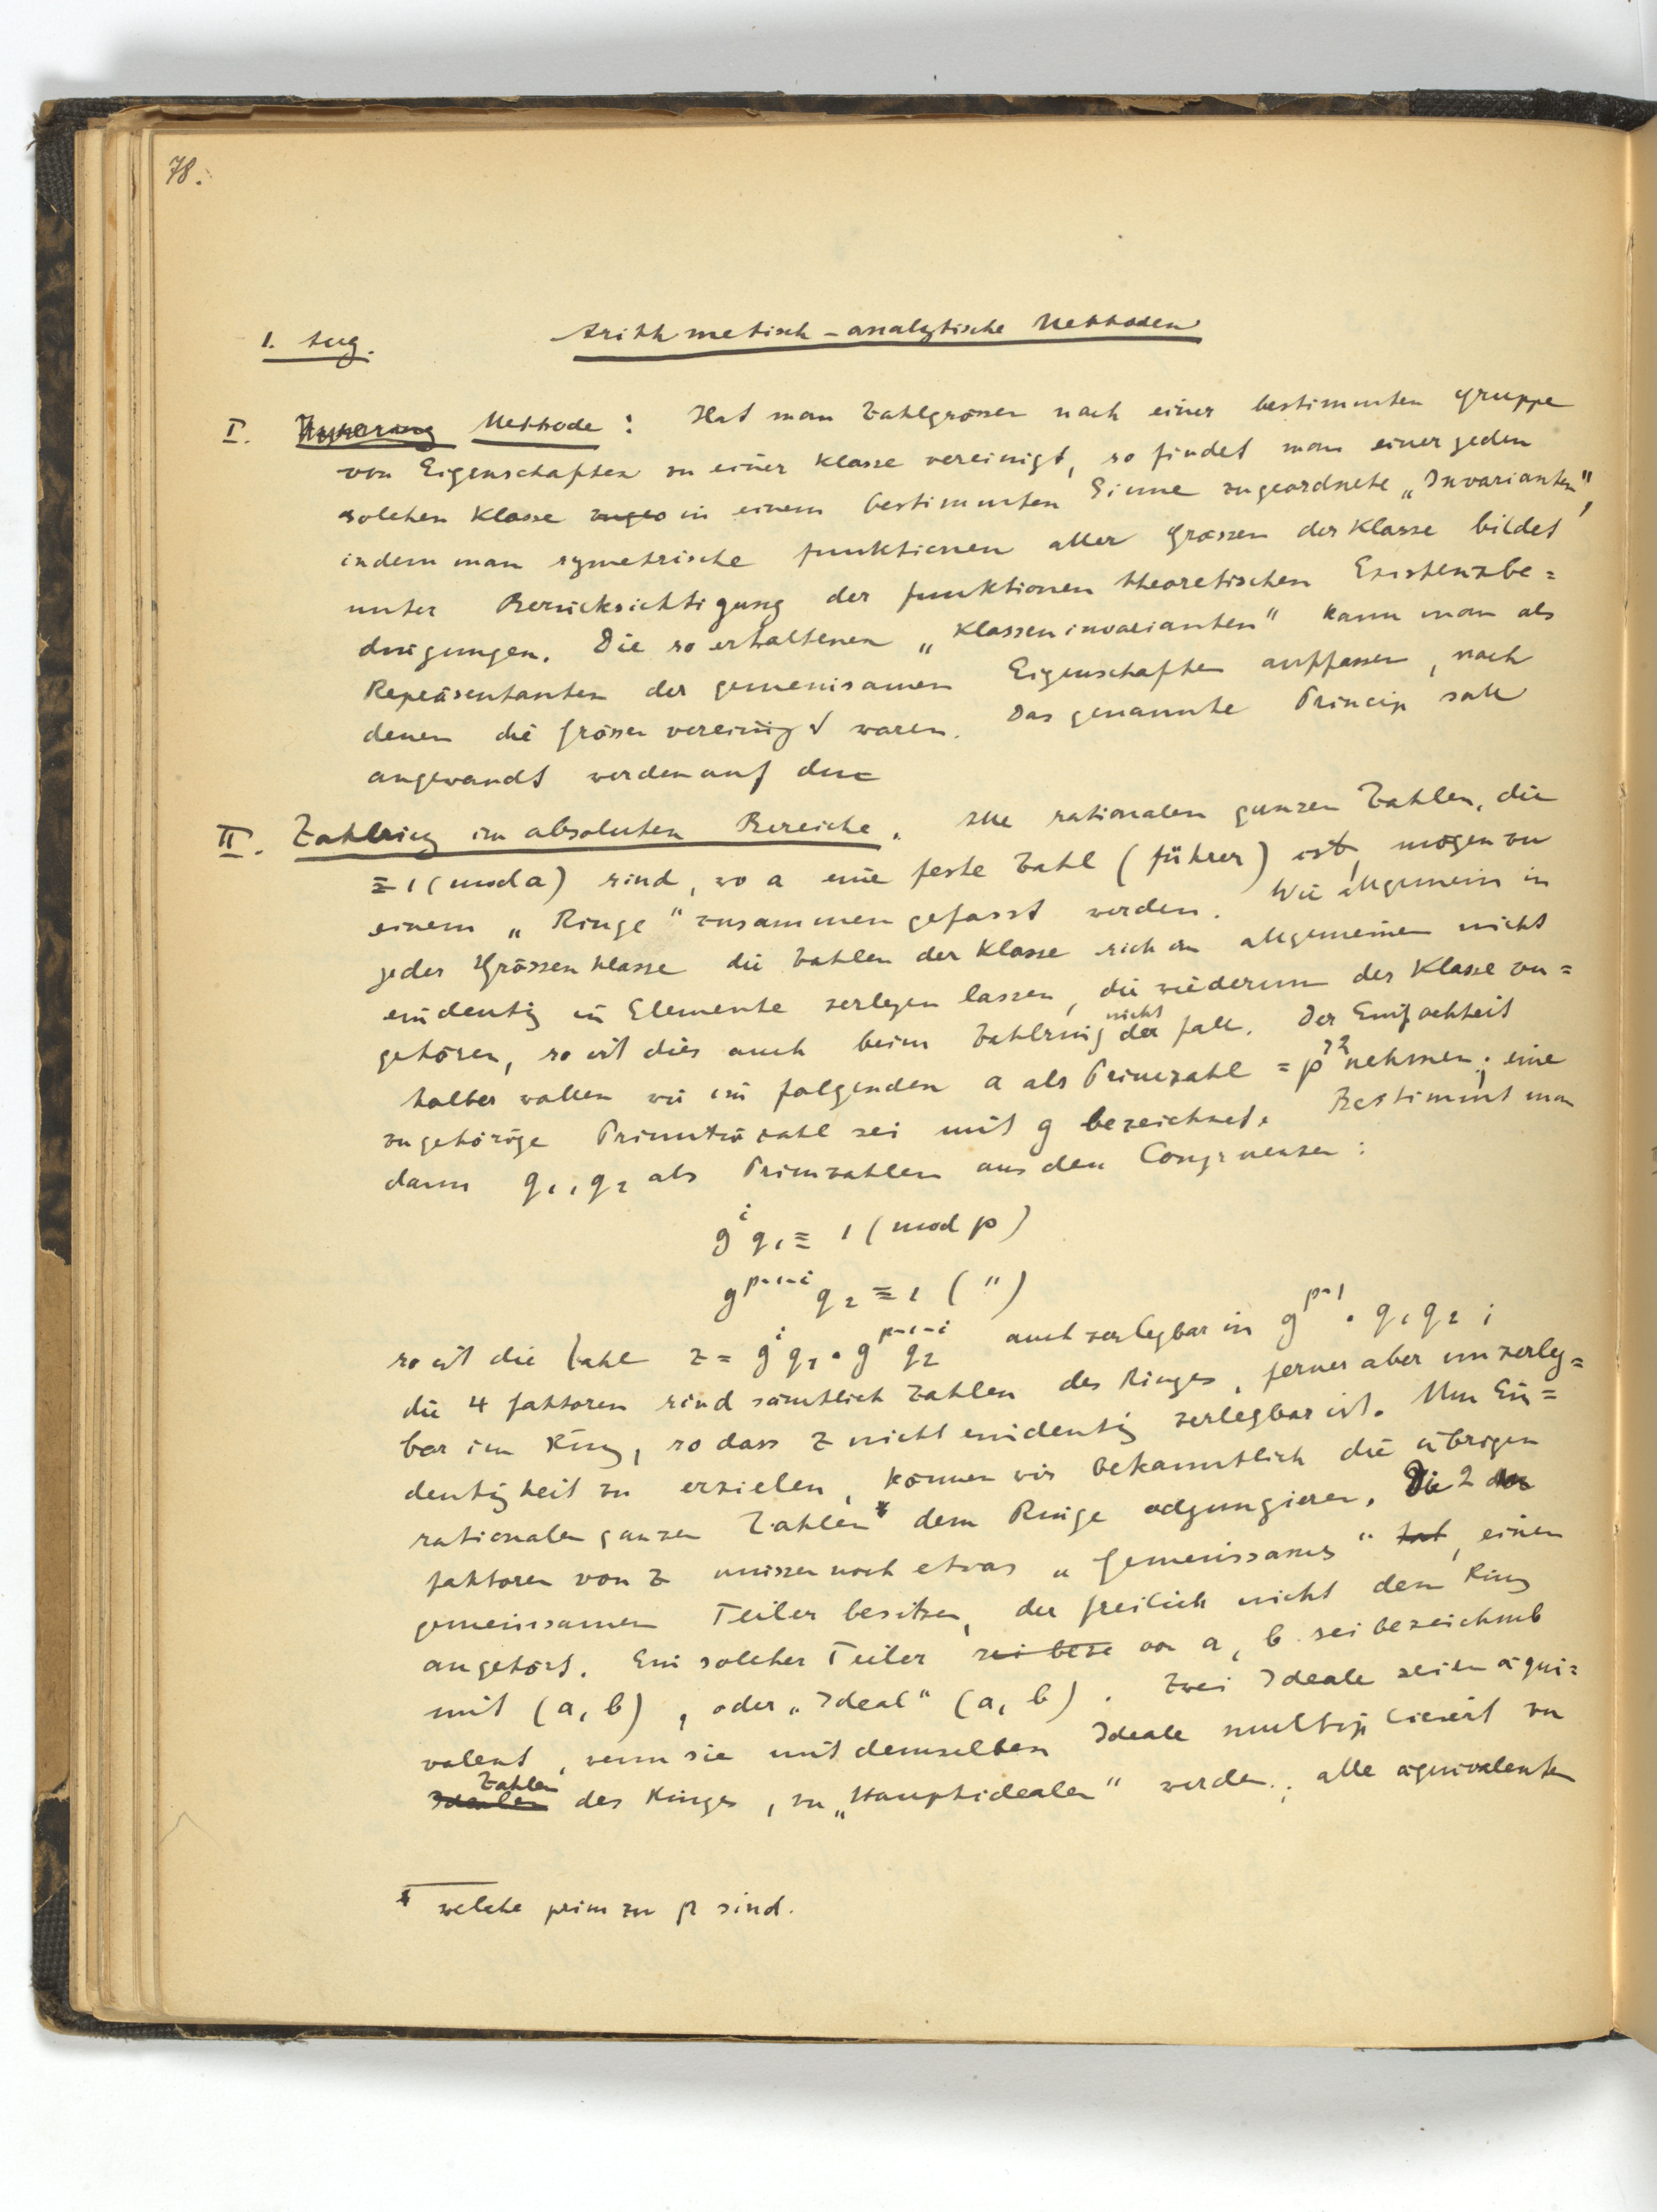 78.
1. Aug. Arithmetisch-analytische Methoden
I. Methode : Hat man Zahlgrössen nach einer bestimmten Gruppe
von Eigenschaften zu einer Klasse vereinigt, so findet man einer jeden
solchen Klasse zugeo in einem bestimmten Sinne zugeordnete „Invarianten",
indem man symetrische Funktionen aller Grössen der Klasse bildet
unter Berücksichtigung der funktionen theoretischen Existenzbe=
dingungen. Die so erhaltenen „Klasseninvarianten" kann man als
Repräsentanten der gemeinsamen Eigenschaften auffassen, nach
denen die Grössen vereinigt waren. Das genannte Princip soll
angewandt werden auf den
II. Zahlring im absoluten Bereiche. Alle rationalen ganzen Zahlen, die
≡ 1 (mod a) sind, wo a eine feste Zahl (Führer) ist, mögen zu
einem „Ringe" zusammengefasst werden. Wie allgemein in
jeder Grössenklasse die Zahlen der Klasse sich im allgemeinen nicht
eindeutig in Elemente zerlegen lassen, die wiederum der Klasse zu=
gehören, so ist dies auch beim Zahlring nicht der Fall. Der Einfachheit
halber wollen wir im folgenden a als Primzahl = p nehmen; eine
zugehörige Primitivzahl sei mit g bezeichnet. Bestimmt man
dann q₁, q₂ als Primzahlen aus den Congruenzen :
gⁱ q₁ ≡ 1 (mod p)
g^{p-1-i} q₂ ≡ 1 ( " )
so ist die Zahl z = gⁱ q₁ · g^{p-1-i} q₂ auch zerlegbar in g^{p-1} · q₁ q₂ ;
die 4 Faktoren sind sämtlich Zahlen des Ringes, ferner aber unzerleg=
bar im Ring, so dass z nicht eindeutig zerlegbar ist. Um Ein=
deutigkeit zu erzielen, können wir bekanntlich die übrigen
rationalen ganzen Zahlen* dem Ringe adjungieren. Die 2
Faktoren von z müssen noch etwas „Gemeinsames" hat, einen
gemeinsamen Teiler besitzen, der freilich nicht dem Ring
angehört. Ein solcher Teiler sei beze von a, b sei bezeichnet
mit (a, b), oder „Ideal" (a, b). Zwei Ideale seien äqui=
valent, wenn sie mit demselben Ideale multipliciert zu
Idealen Zahlen des Ringes, zu „Hauptidealen" werden; alle äquivalenten
* welche prim zu p sind.